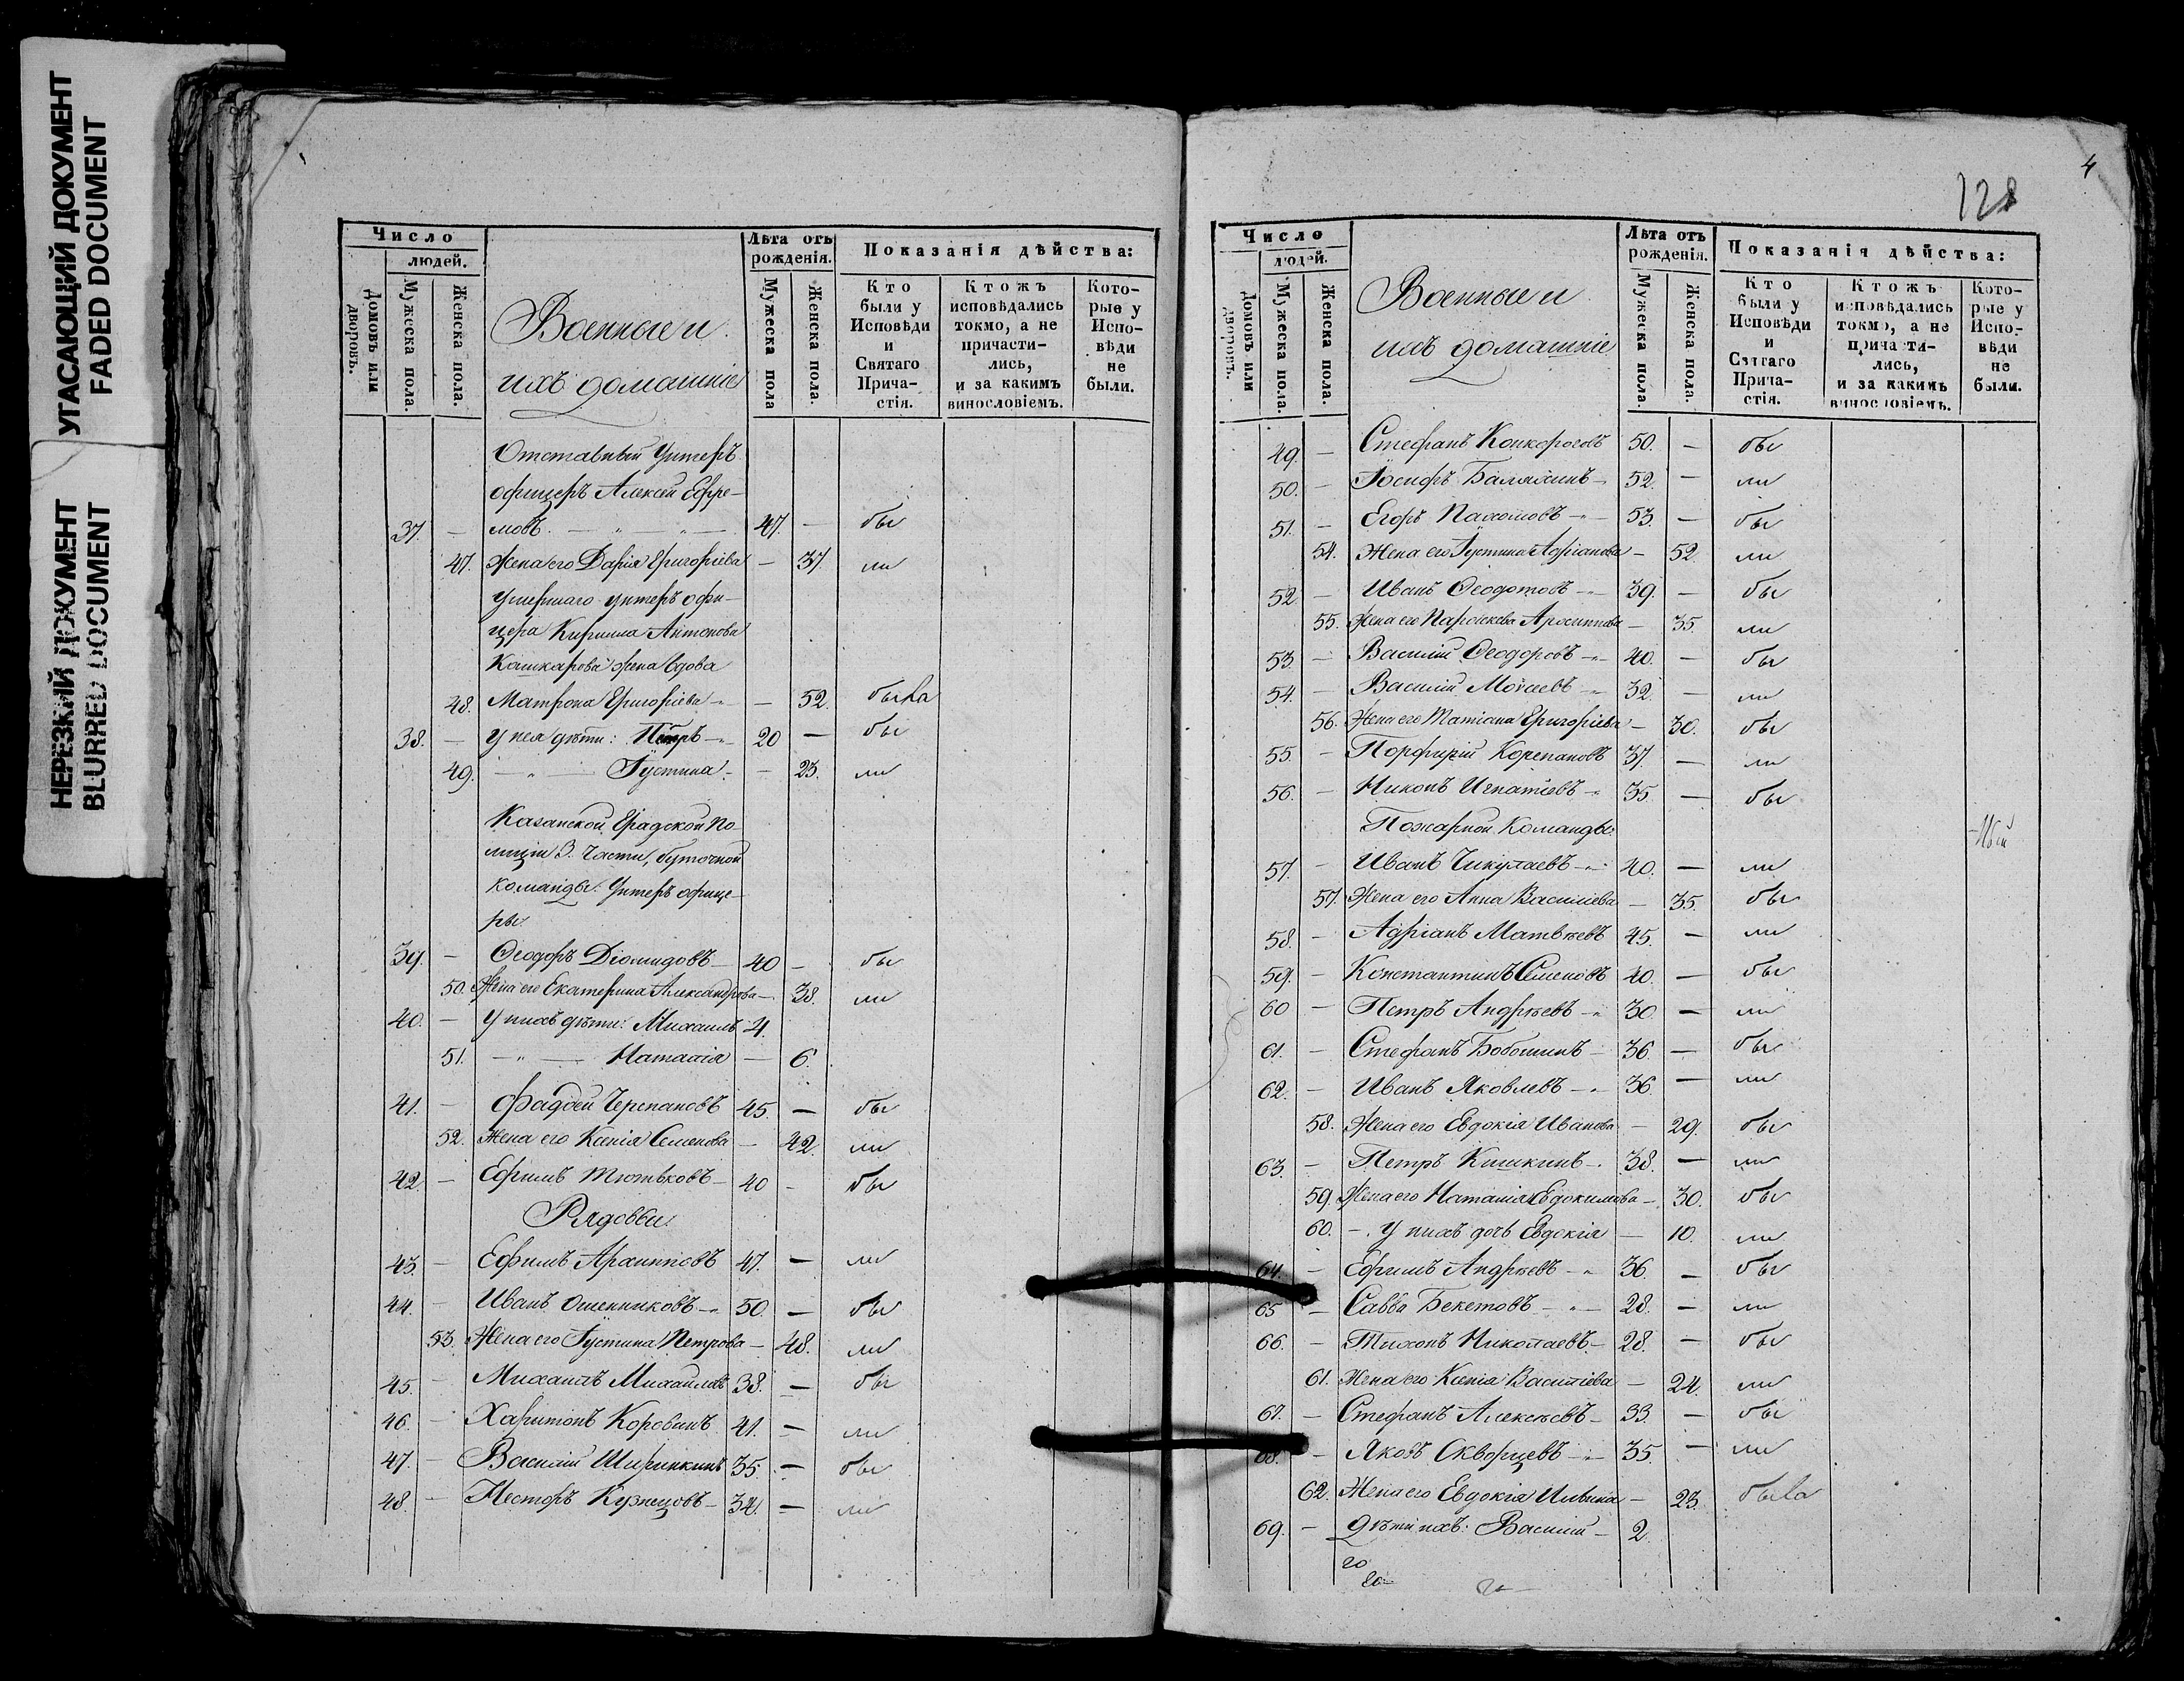 УГАСАЮЩИЙ ДОКУМЕНТ
FADED DOCUMENT
НЕРЕЗКИЙ ДОКУМЕНТ
BLURRED DOCUMENT
Число
людей.
Домовъ или дворовъ.
Мужеска пола.
Женска пола.
Военные и
ихъ домашніе
Лѣта отъ рожденія.
Мужеска пола
Женска пола.
Показанія дѣйства:
Кто были у Исповѣди и Святаго Причастія.
Ктожъ исповѣдались токмо, а не причастились, и за какимъ винословіемъ.
Которые у Исповѣди не были.
Отставный Унтеръ
офицеръ Алексей Ефре-
37. — мовъ. — 47. — бы
47. Жена его Дарія Григоріева — 37. ли
Умершаго унтеръ офи-
цера Кирилла Антонова
Кошкарова жена вдова
48. Матрона Григоріева — 52. была
38. — У нея дѣти: Петръ 20 — бы
49. Іустина — 23. ли
Казанской Градской По-
лиціи 3. Части, буточной
команды: Унтеръ офице-
ры.
39. — Ѳеодоръ Діомидовъ — 40 — бы
50. Жена его Екатерина Александрова — 38. ли
40. — У нихъ дѣти: Михаилъ 4.
51. Наталія — 6.
41. — Фадѣй Черепановъ 45. — бы
52. Жена его Ксенія Семенова — 42. ли
42. — Ефимъ Тютьковъ — 40 — бы
Рядовые
43. — Ефимъ Архиповъ 47. — ли
44. — Иванъ Ошенниковъ 50. — бы
53. Жена его Іустина Петрова — 48. ли
45. — Михаилъ Михайловъ 38. — бы
46. — Харитонъ Корованъ 41. — ли
47. — Василій Ширинкинъ 35. — бы
48 — Несторъ Кузнецовъ — 34. — ли
4
128
Число
людей.
Домовъ или дворовъ.
Мужеска пола.
Женска пола.
Военные и
ихъ домашніе
Лѣта отъ рожденія.
Мужеска пола.
Женска пола.
Показанія дѣйства:
Кто были у Исповѣди и Святаго Причастія.
Ктожъ исповѣдались токмо, а не причастились, и за какимъ винословіемъ.
Которые у Исповѣди не были.
49. — Стефанъ 50. — бы
50. — Іосифъ Балахинъ 52. — ли
51. — Егоръ Пахомовъ 53. — бы
54. Жена его Іустина Адріанова — 52. ли
52 — Иванъ Ѳеодотовъ 39. — бы
55. Жена его Параскева — 35. ли
53. — Василій Ѳеодоровъ 40. — бы
54. — Василій Моисеевъ 32. — ли
56. Жена его Татіана Григоріева — 30. бы
55. — Порфирій Корепановъ 37. — ли
56. — Никонъ Игнатіевъ 35. — бы
Пожарной Команды:
57. — Иванъ Чикулаевъ 40. — ли
57. Жена его Анна Василіева — 35. бы
58. — Адріанъ Матвѣевъ 45. — ли
59. — Константинъ Семеновъ 40. — бы
60 — Петръ Андрѣевъ 30. — ли
61. — Стефанъ Бобошинъ 36. — бы
62. — Иванъ Яковлевъ 36. — ли
58. Жена его Евдокія Иванова — 29. бы
63. — Петръ Кишкинъ 38. — ли
59. Жена его Наталія Евдокимова — 30. бы
60. — У нихъ дочь Евдокія — 10. ли
64. — Ефимъ Андрѣевъ 36. — бы
65 — Савва Бекетовъ 28. — ли
66. — Тихонъ Николаевъ 28. — бы
61. Жена его Ксенія Василіева — 24. ли
67. — Стефанъ Алексѣевъ 33. — бы
68. — Яковъ Скворцевъ 35. — ли
62. Жена его Евдокія Ильина — 23. была
69. — Дѣти ихъ: Василій — 2.